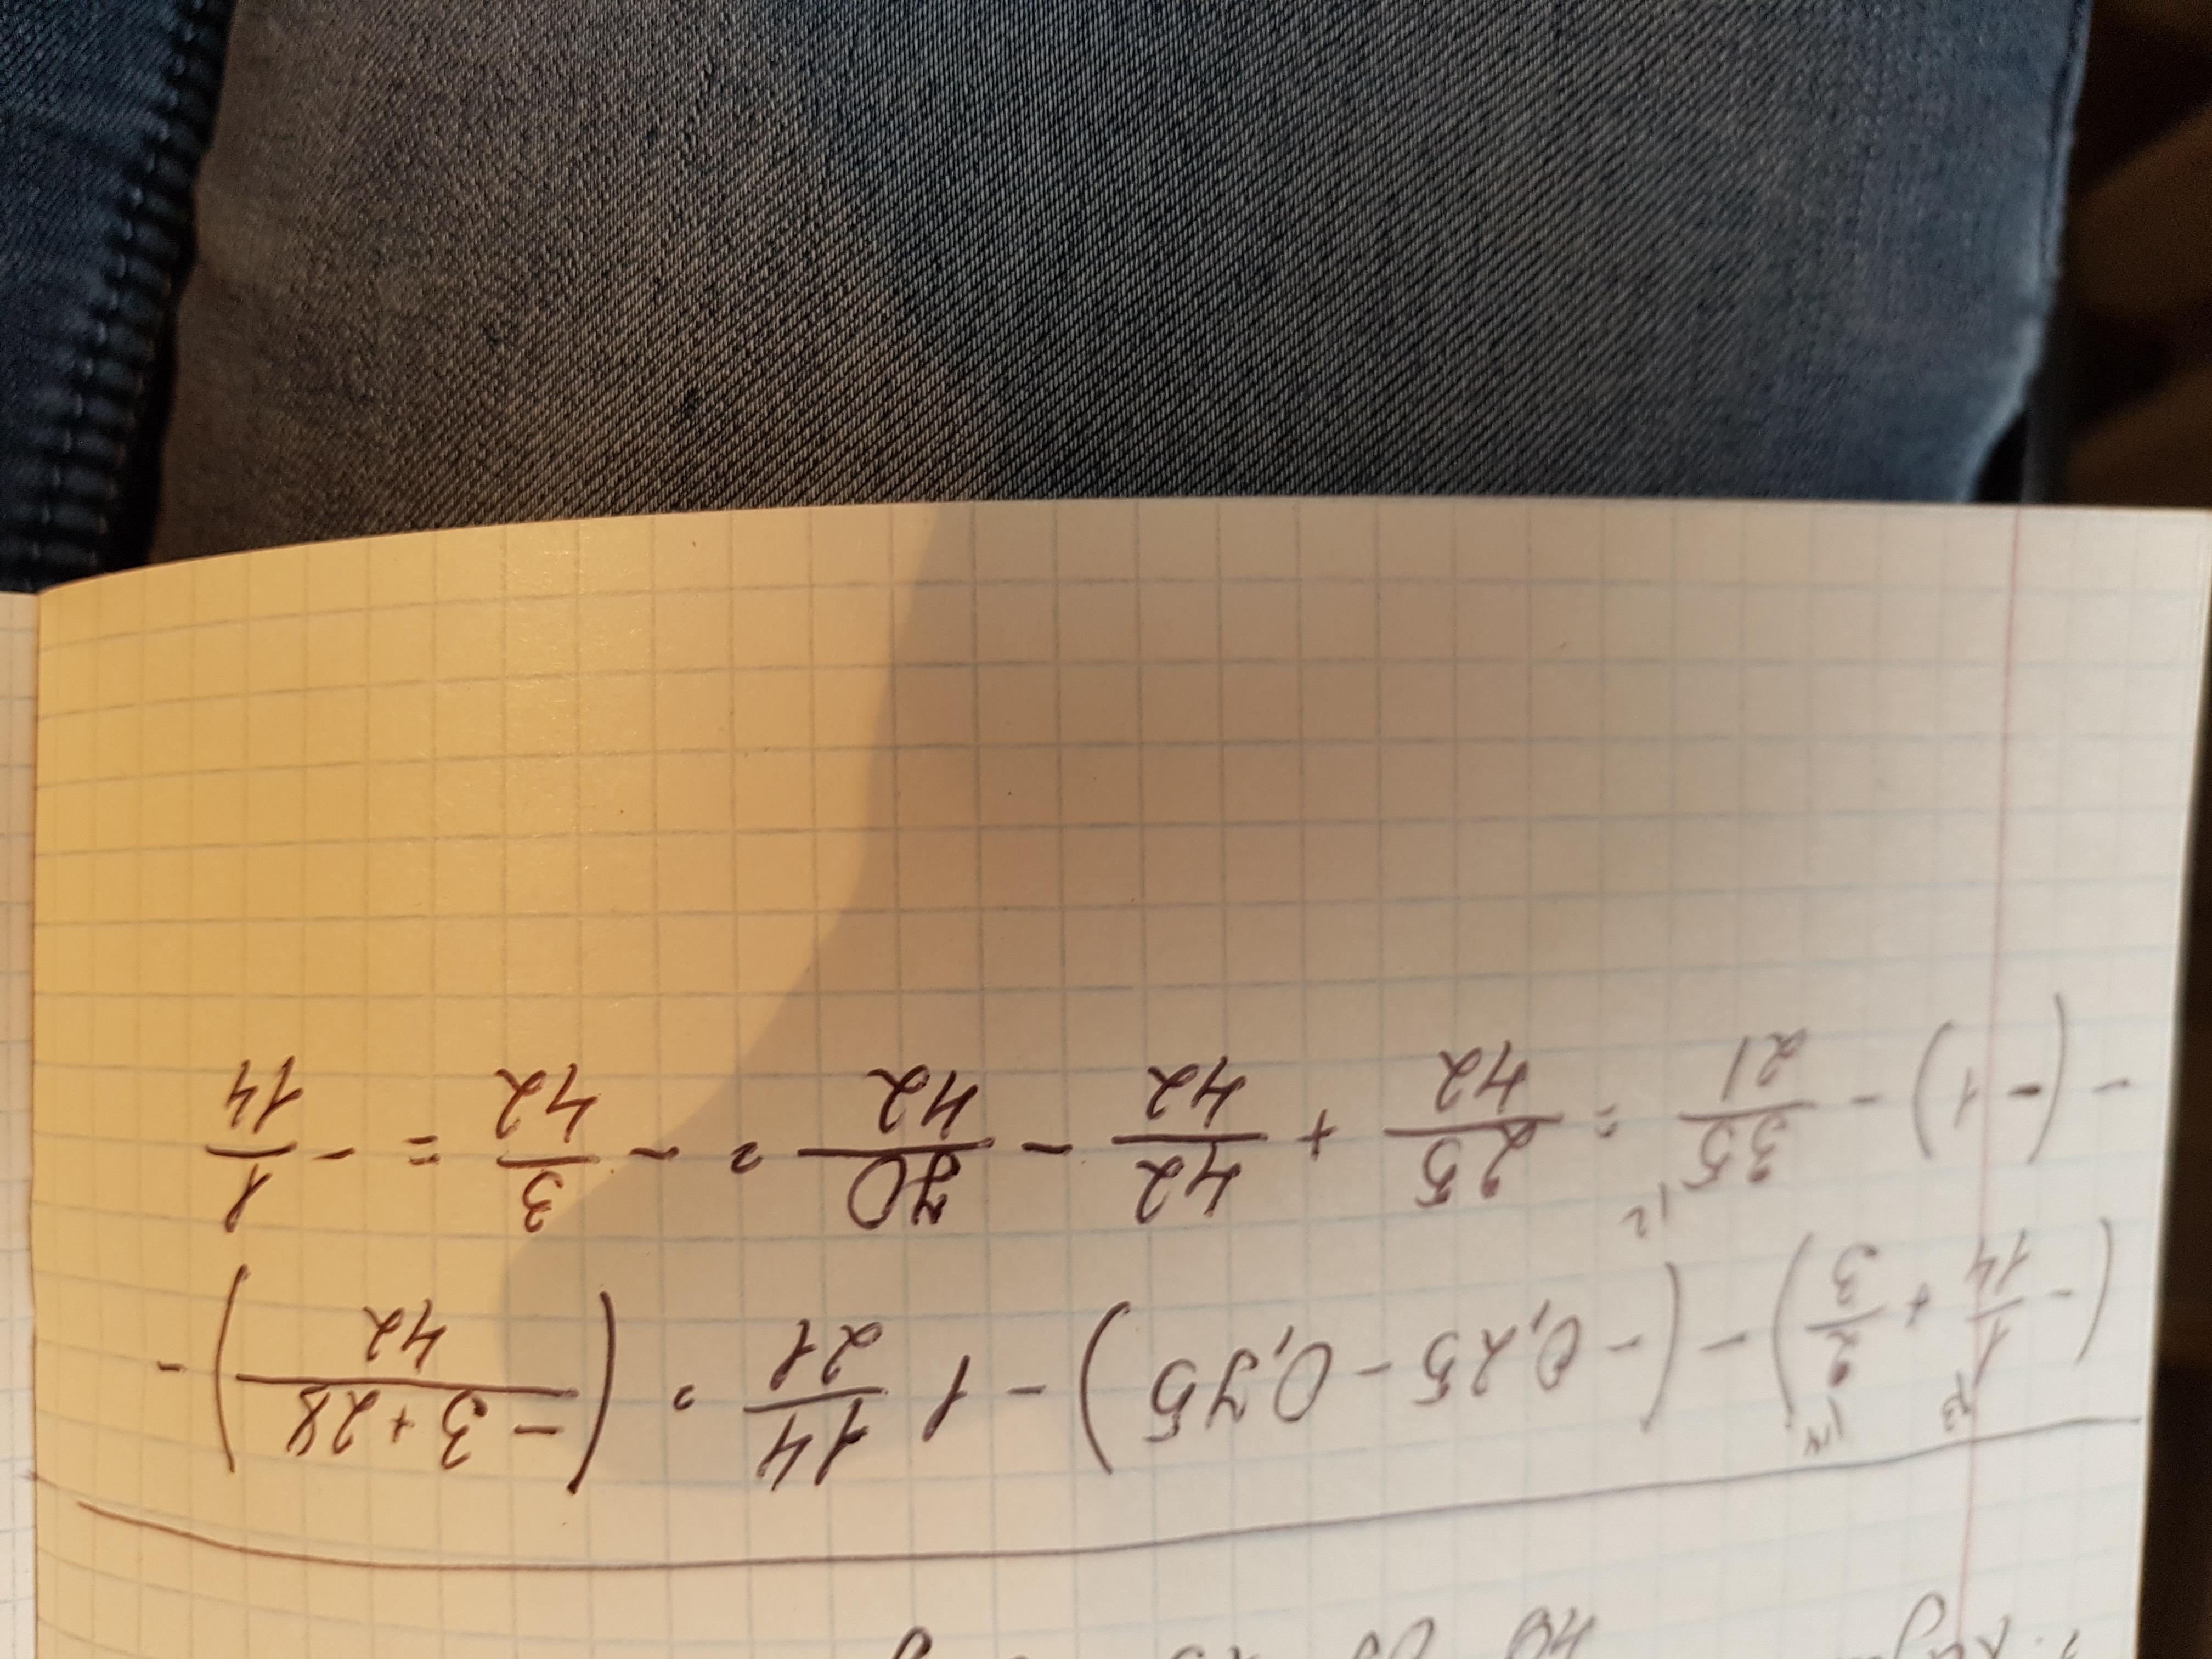 (-1/14 + 2/3) - (-0,25 - 0,75) - 1 14/21 = (-3+28/42) -
- (-1) - 35/21 = 25/42 + 42/42 - 70/42 = - 3/42 = - 1/14